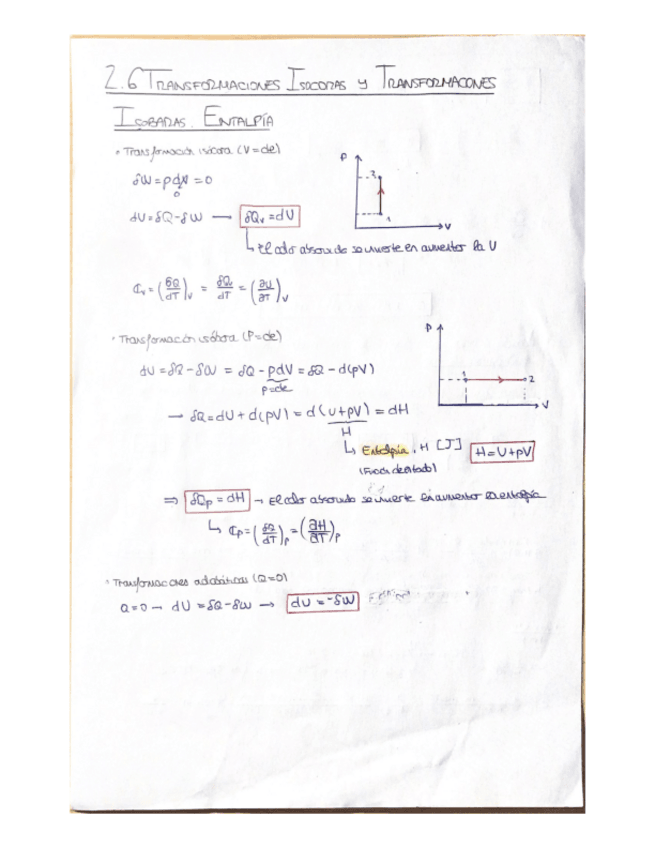 2.6 TRANSFORMACIONES ISOCORAS Y TRANSFORMACONES
ISOBARAS. ENTALPÍA
• Transformación isócora (V=cte)
δW = p dV = 0
0
dU = δQ - δW → δQv = dU
↳ El calor absorvido se invierte en aumentar la U
P
2
1
V
Cv = (δQ/dT)v = δQv/dT = (∂U/∂T)v
• Transformación isóbara (P=cte)
dU = δQ - δW = δQ - pdV = δQ - d(pV)
p=cte
→ δQ = dU + d(pV) = d(U+pV) = dH
H
P
1
2
V
↳ Entalpía, H [J] H = U+pV
(Función de estado)
⇒ δQp = dH → El calor absorvido se invierte en aumentar la entalpía
↳ Cp = (δQ/dT)p = (∂H/∂T)p
• Transformaciones adiabáticas (Q=0)
Q=0 → dU = δQ - δW → dU = -δW